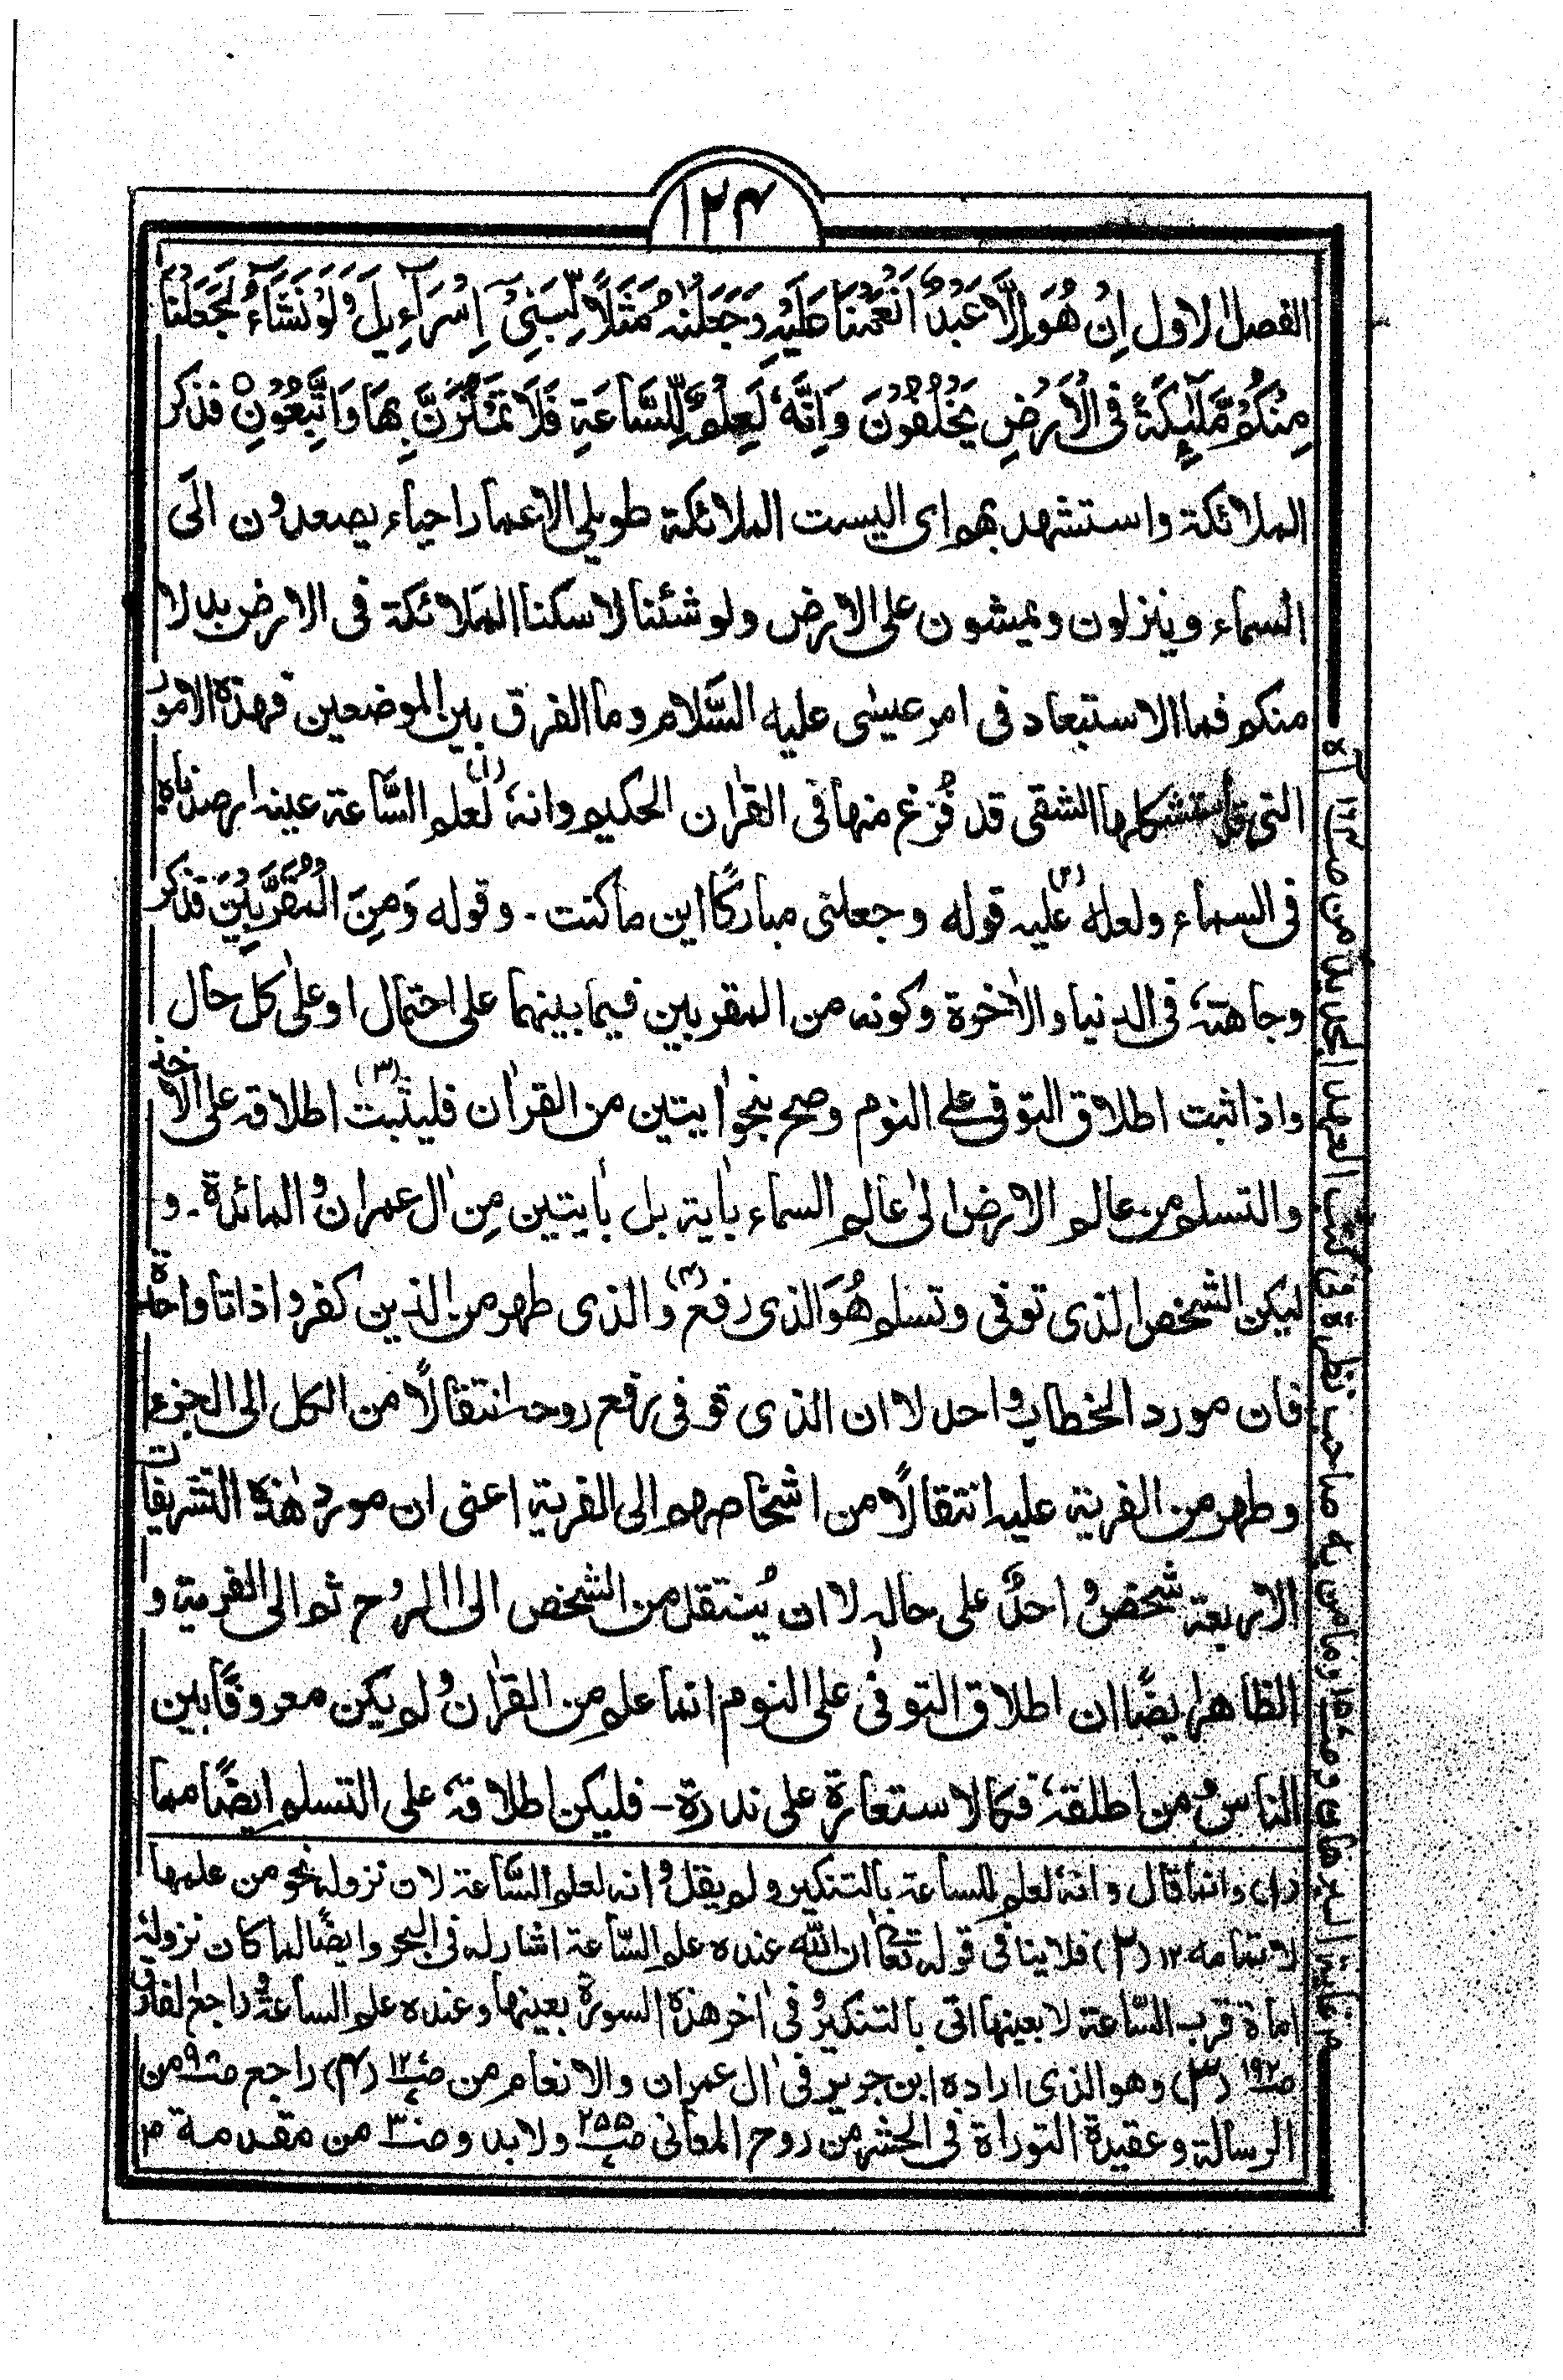 ۱۲۴
الفصل الاول اِنْ هُوَ اِلَّا عَبْدٌ اَنْعَمْنَا عَلَيْهِ وَجَعَلْنٰهُ مَثَلًا لِّبَنِيْٓ اِسْرَآءِيْلَ وَلَوْ نَشَآءُ لَجَعَلْنَا
مِنْكُمْ مَّلٰٓئِكَةً فِى الْاَرْضِ يَخْلُفُوْنَ وَاِنَّهٗ لَعِلْمٌ لِّلسَّاعَةِ فَلَا تَمْتَرُنَّ بِهَا وَاتَّبِعُوْنِ فذكر
الملائكة واستشهد بهم اى اليست الملائكة طويلى الاعمار احياء يصعدون الى
السماء وينزلون ويمشون على الارض ولو شئنا لاسكنا الملائكة فى الارض بدلا
منكم فما الاستبعاد فى امر عيسٰى عليه السَّلام وما الفرق بين الموضعين فهذه الامور
التى قد استشكلها الشقى قد فُرِغ منها فى القرٰان الحكيم وانهٗ لَعلم السَّاعة (۱) عينه ارصدناه
فى السماء ولعله (۲) عليه قوله وجعلنى مباركًا اين ما كنت - وقوله وَمِنَ الْمُقَرَّبِيْنَ فذكر
وجاهتهٗ فى الدنيا والاٰخرة وكونه من المقربين فيما بينهما على احتمال او علٰى كل حال
واذا ثبت اطلاق التوفى على النوم وصح بنحو اٰيتين من القراٰن فليثبت (۳) اطلاقه على الاخذ
والتسلم من عالم الارض الىٰ عالم السماء باٰية بل باٰيتين مِن اٰل عمران والمائدة - و
ليكن الشخص الذى توفى وتسلم هُوَ الذى رفع (۴) والذى طهر من الذين كفروا ذاتا واحدة
فان مورد الخطاب واحد لا ان الذى توفى رفع روحه انتقالًا من الكل الى الجزء
وطهر من الفرية عليه انتقالًا من اشخاصهم الى الفرية اعنى ان مورد هٰذه التشريفات
الاربعة شخص واحدٌ على حاله لا ان يُنتقل من الشخص الى الروح ثم الى الفرية و
الظاهر ايضًا ان اطلاق التوفى على النوم انما علم من القراٰن ولم يكن معروفًا بين
الناس ومن اطلقهٗ فكالاستعارة على ندرة - فليكن اطلاقهٗ على التسلم ايضًا مما
(۱) وانما قال وانهٗ لعلم للساعة بالتنكير ولم يقل وانه لعلم السَّاعة لان نزوله نحو من علمها
لا تمامه ۱۲ (۲) فلا ينافى قوله تعالٰى ان الله عنده علم السَّاعة اشار له فى البحر وايضًا لما كان نزوله
امارة قرب السَّاعة لا بعينها اتى بالتنكير وفى اٰخر هذه السورة بعينها وعنده علم الساعة راجع
صـ۱۹۲ (۳) وهو الذى اراده ابن جرير فى اٰل عمران والانعام من (۴) راجع صـ من
الرسالة وعقيدة التوراة فى الحشر من روح المعانى صـ۲۵۵ ولا بد وصـ۳ من مقدمة